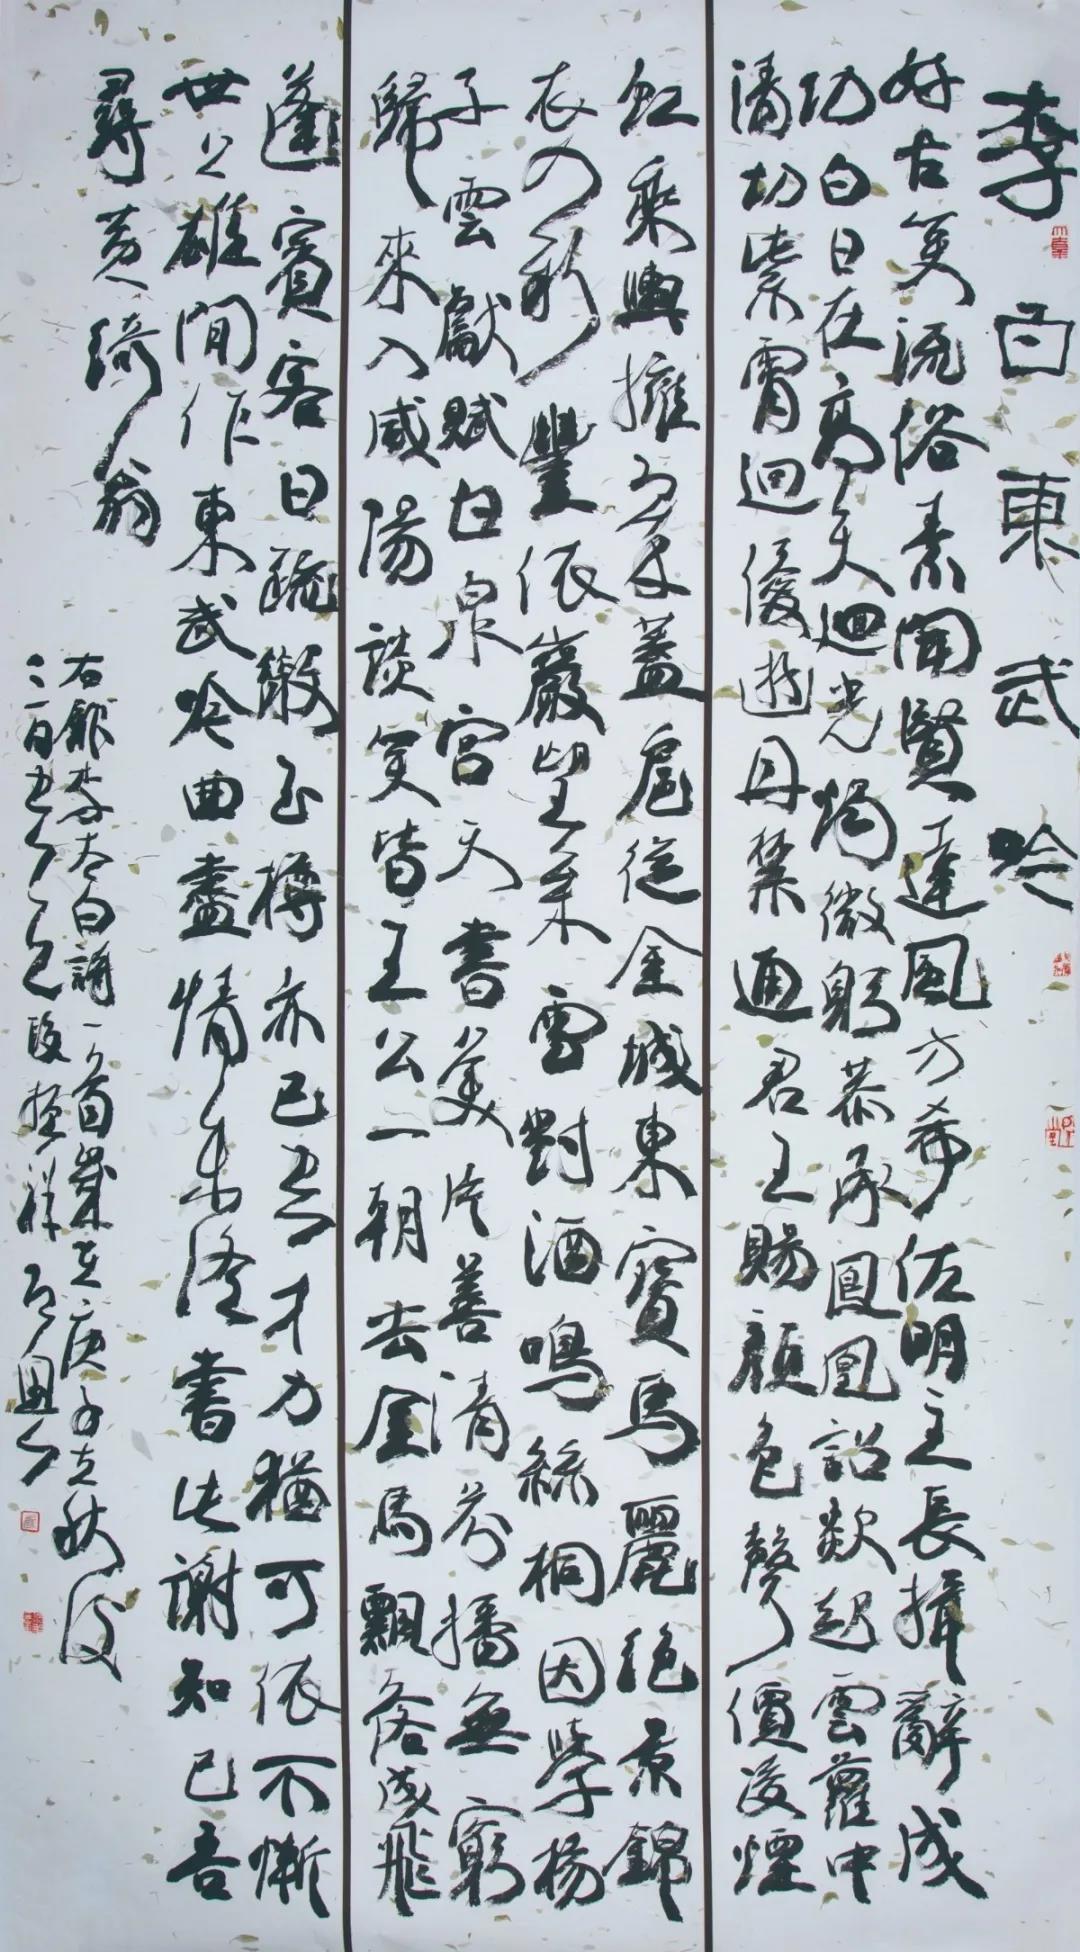 李白東武吟
好古笑流俗素聞賢達風方希佐明主長揖辭成
功白日在高天迴光燭微躬恭承鳳凰詔欻起雲蘿中
清切紫霄迴優游丹禁通君王賜顏色聲價凌煙
虹乘輿擁翠蓋扈從金城東寶馬麗絕景錦
衣入新豐依巖望松雪對酒鳴絲桐因學楊
子雲獻賦甘泉宮天書美片善清芬播無窮
歸來入咸陽談笑皆王公一朝去金馬飄落成飛
蓬賓客日疏散玉樽亦已空才力猶可依不慚
世上雄閒作東武吟曲盡情未終書此謝知己吾
尋黃綺翁
右錄李太白詩一首歲在庚子立秋後